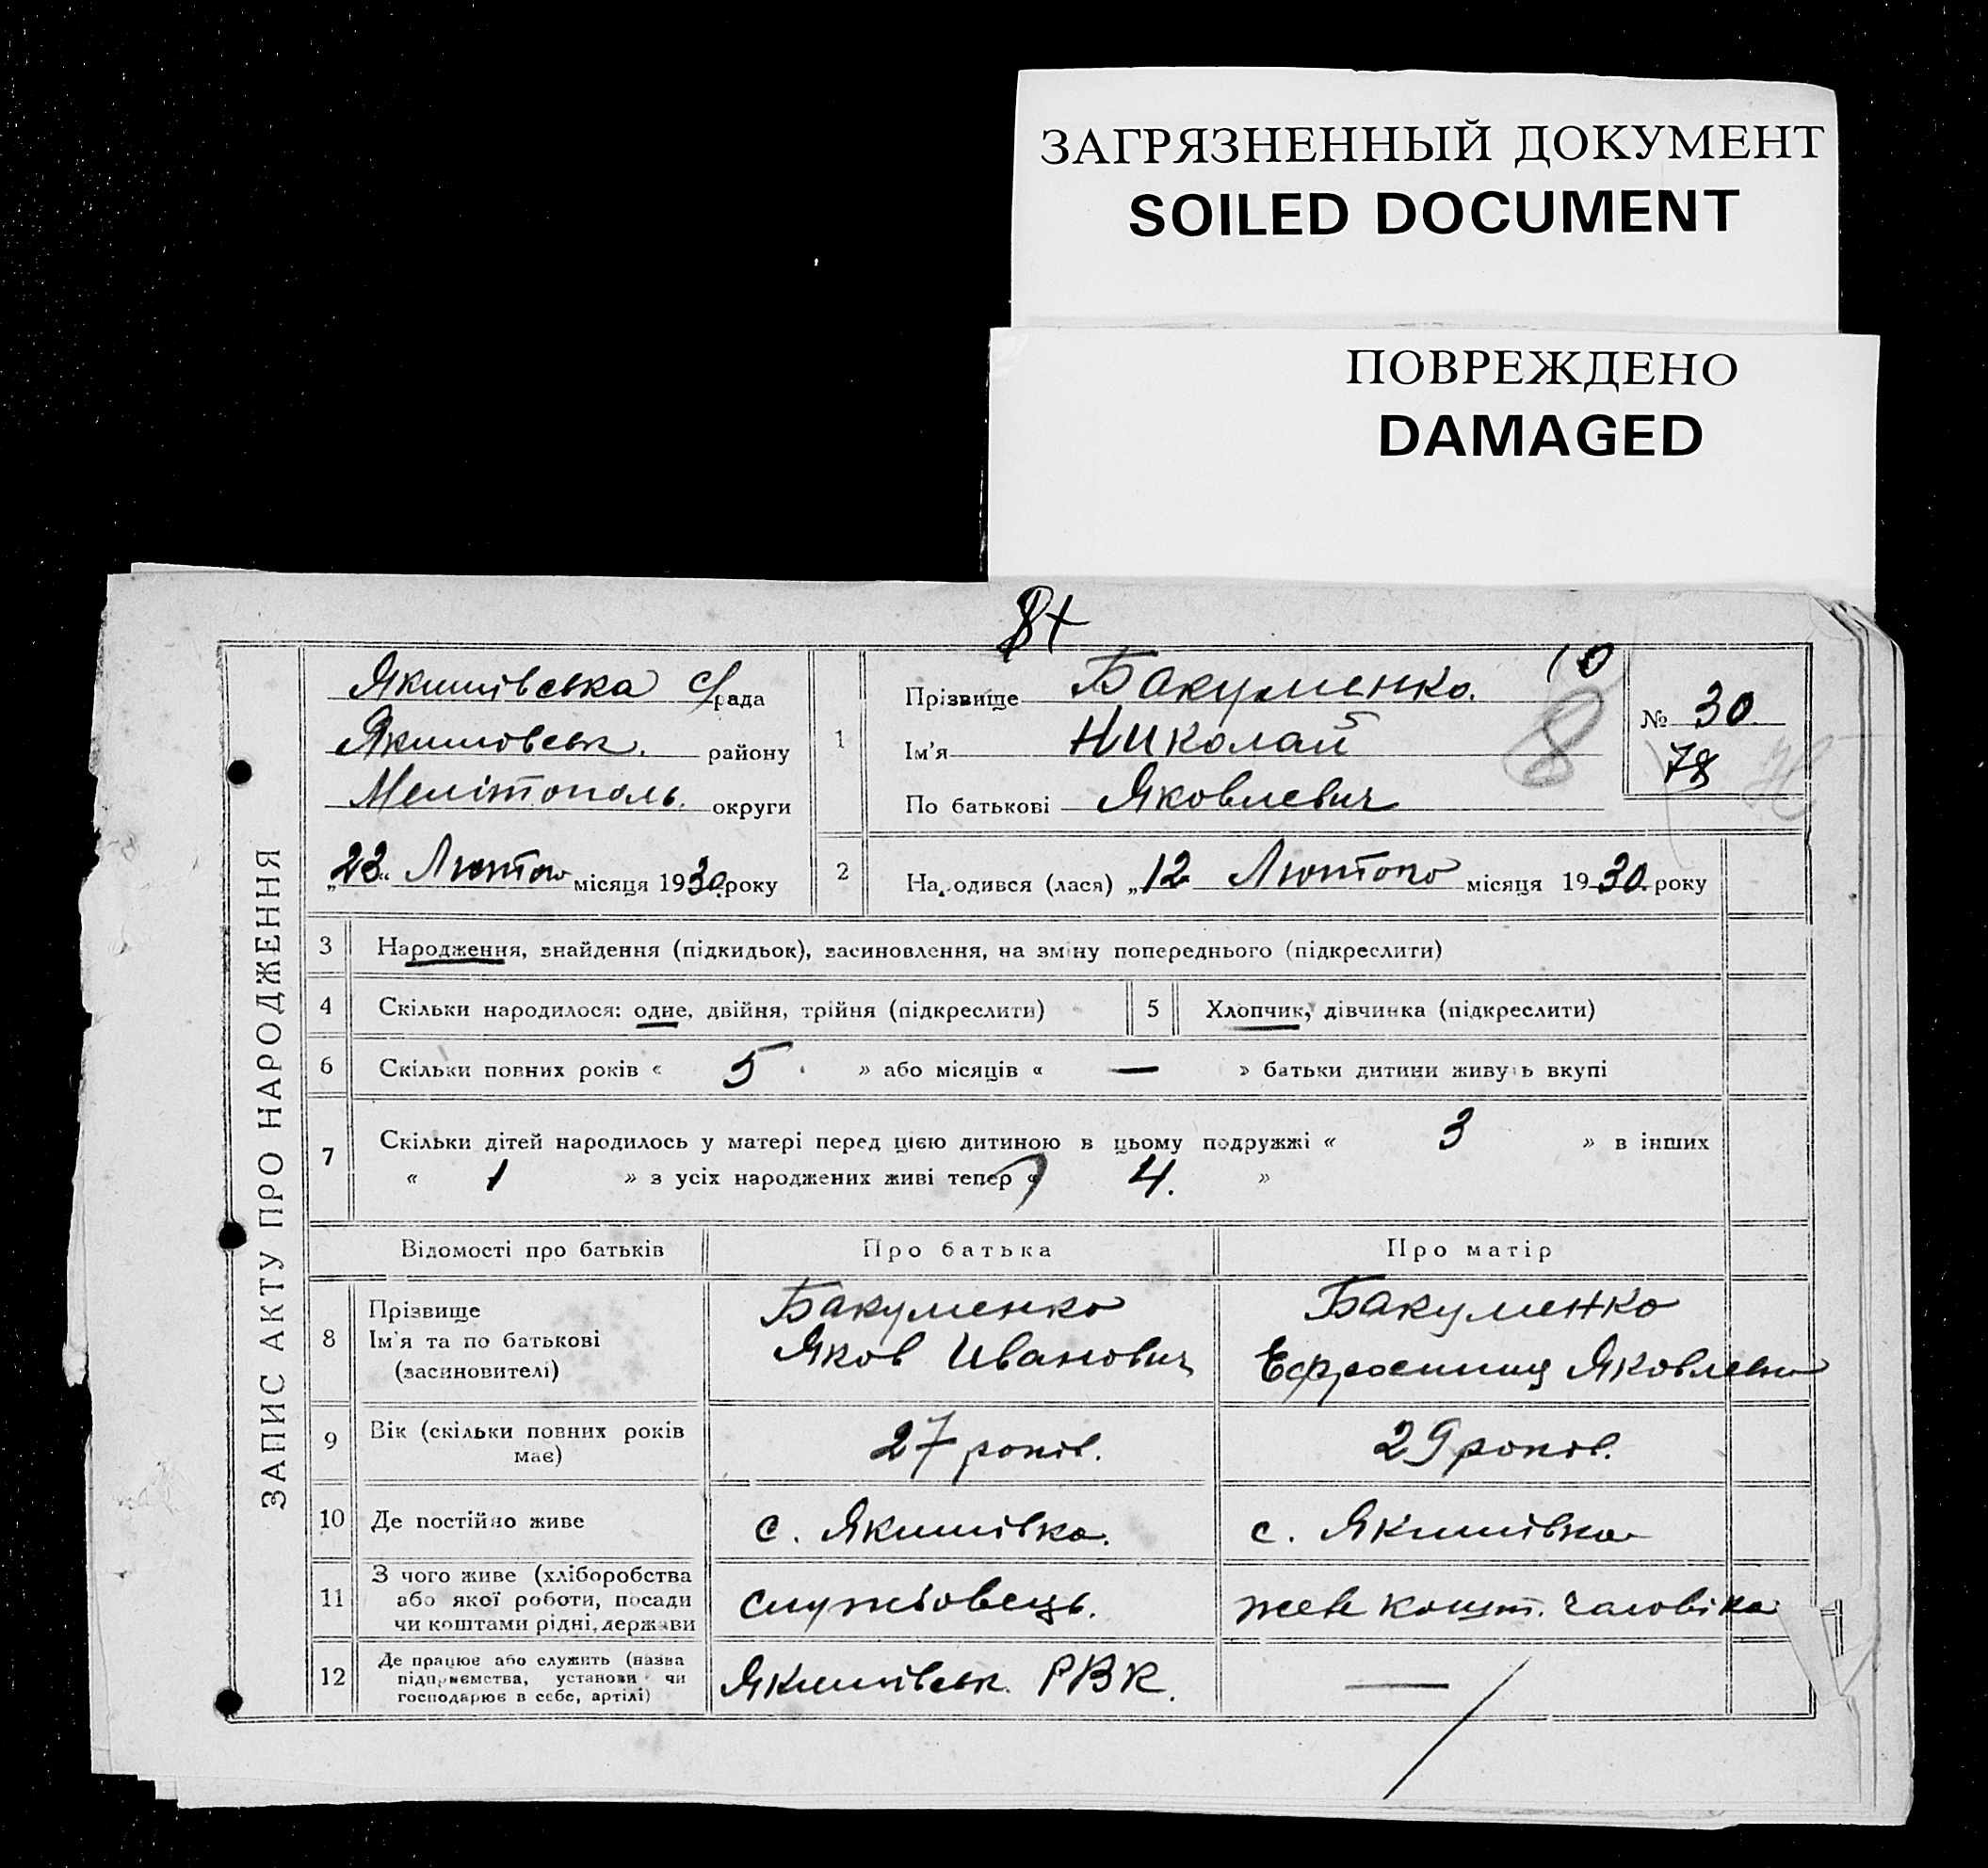 ЗАГРЯЗНЕННЫЙ ДОКУМЕНТ
SOILED DOCUMENT
ПОВРЕЖДЕНО
DAMAGED
ЗАПИС АКТУ ПРО НАРОДЖЕННЯ
Якимівська с/рада
Якимовськ. району
Мелітополь. округи
„23“ Лютого місяця 1930 року
1
Прізвище Бакуменко.
10
Ім'я Николай
8
По батькові Яковлевич
№ 30
78
2 Народився (лася) „12 Лютого місяця 1930. року
3 Народження, знайдення (підкидьок), засиновлення, на зміну попереднього (підкреслити)
4 Скільки народилося: одне, двійня, трійня (підкреслити) 5 Хлопчик, дівчинка (підкреслити)
6 Скільки повних років « 5 » або місяців « — » батьки дитини живуть вкупі
7 Скільки дітей народилось у матері перед цією дитиною в цьому подружжі « 3 » в інших
« 1 » з усіх народжених живі тепер « 4. »
Відомості про батьків Про батька Про матір
8 Прізвище
Ім'я та по батькові
(засиновителі)
Бакуменко
Яков Иванович
Бакуменко
Ефросиния Яковлевн
9 Вік (скільки повних років
має)
27 років.
29 років.
10 Де постійно живе с. Якимівка. с. Якимівка
11 З чого живе (хліборобства
або якої роботи, посади
чи коштами рідні, держави
службовець.
живе кошт. чоловіка
12 Де працює або служить (назва
підприємства, установи чи
господарює в себе, артілі)
Якимівськ. РВК.
—